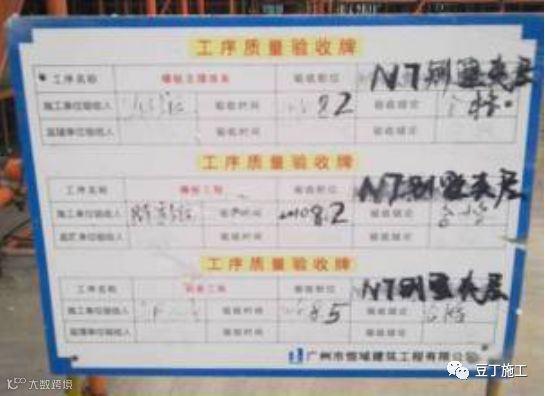 工序质量验收牌
工序名称 模板支撑体系 验收部位 N7别墅夹层
施工单位验收人 验收时间 验收结论 合格
监理单位验收人 验收时间 验收结论
工序质量验收牌
工序名称 模板工程 验收部位 N7别墅夹层
施工单位验收人 验收时间 8.2 验收结论 合格
监理单位验收人 验收时间 验收结论
工序质量验收牌
工序名称 验收部位 N7别墅夹层
施工单位验收人 验收时间 8.5 验收结论 合格
监理单位验收人 验收时间 验收结论
广州市恒域建筑工程有限公司
大数跨境
豆丁施工